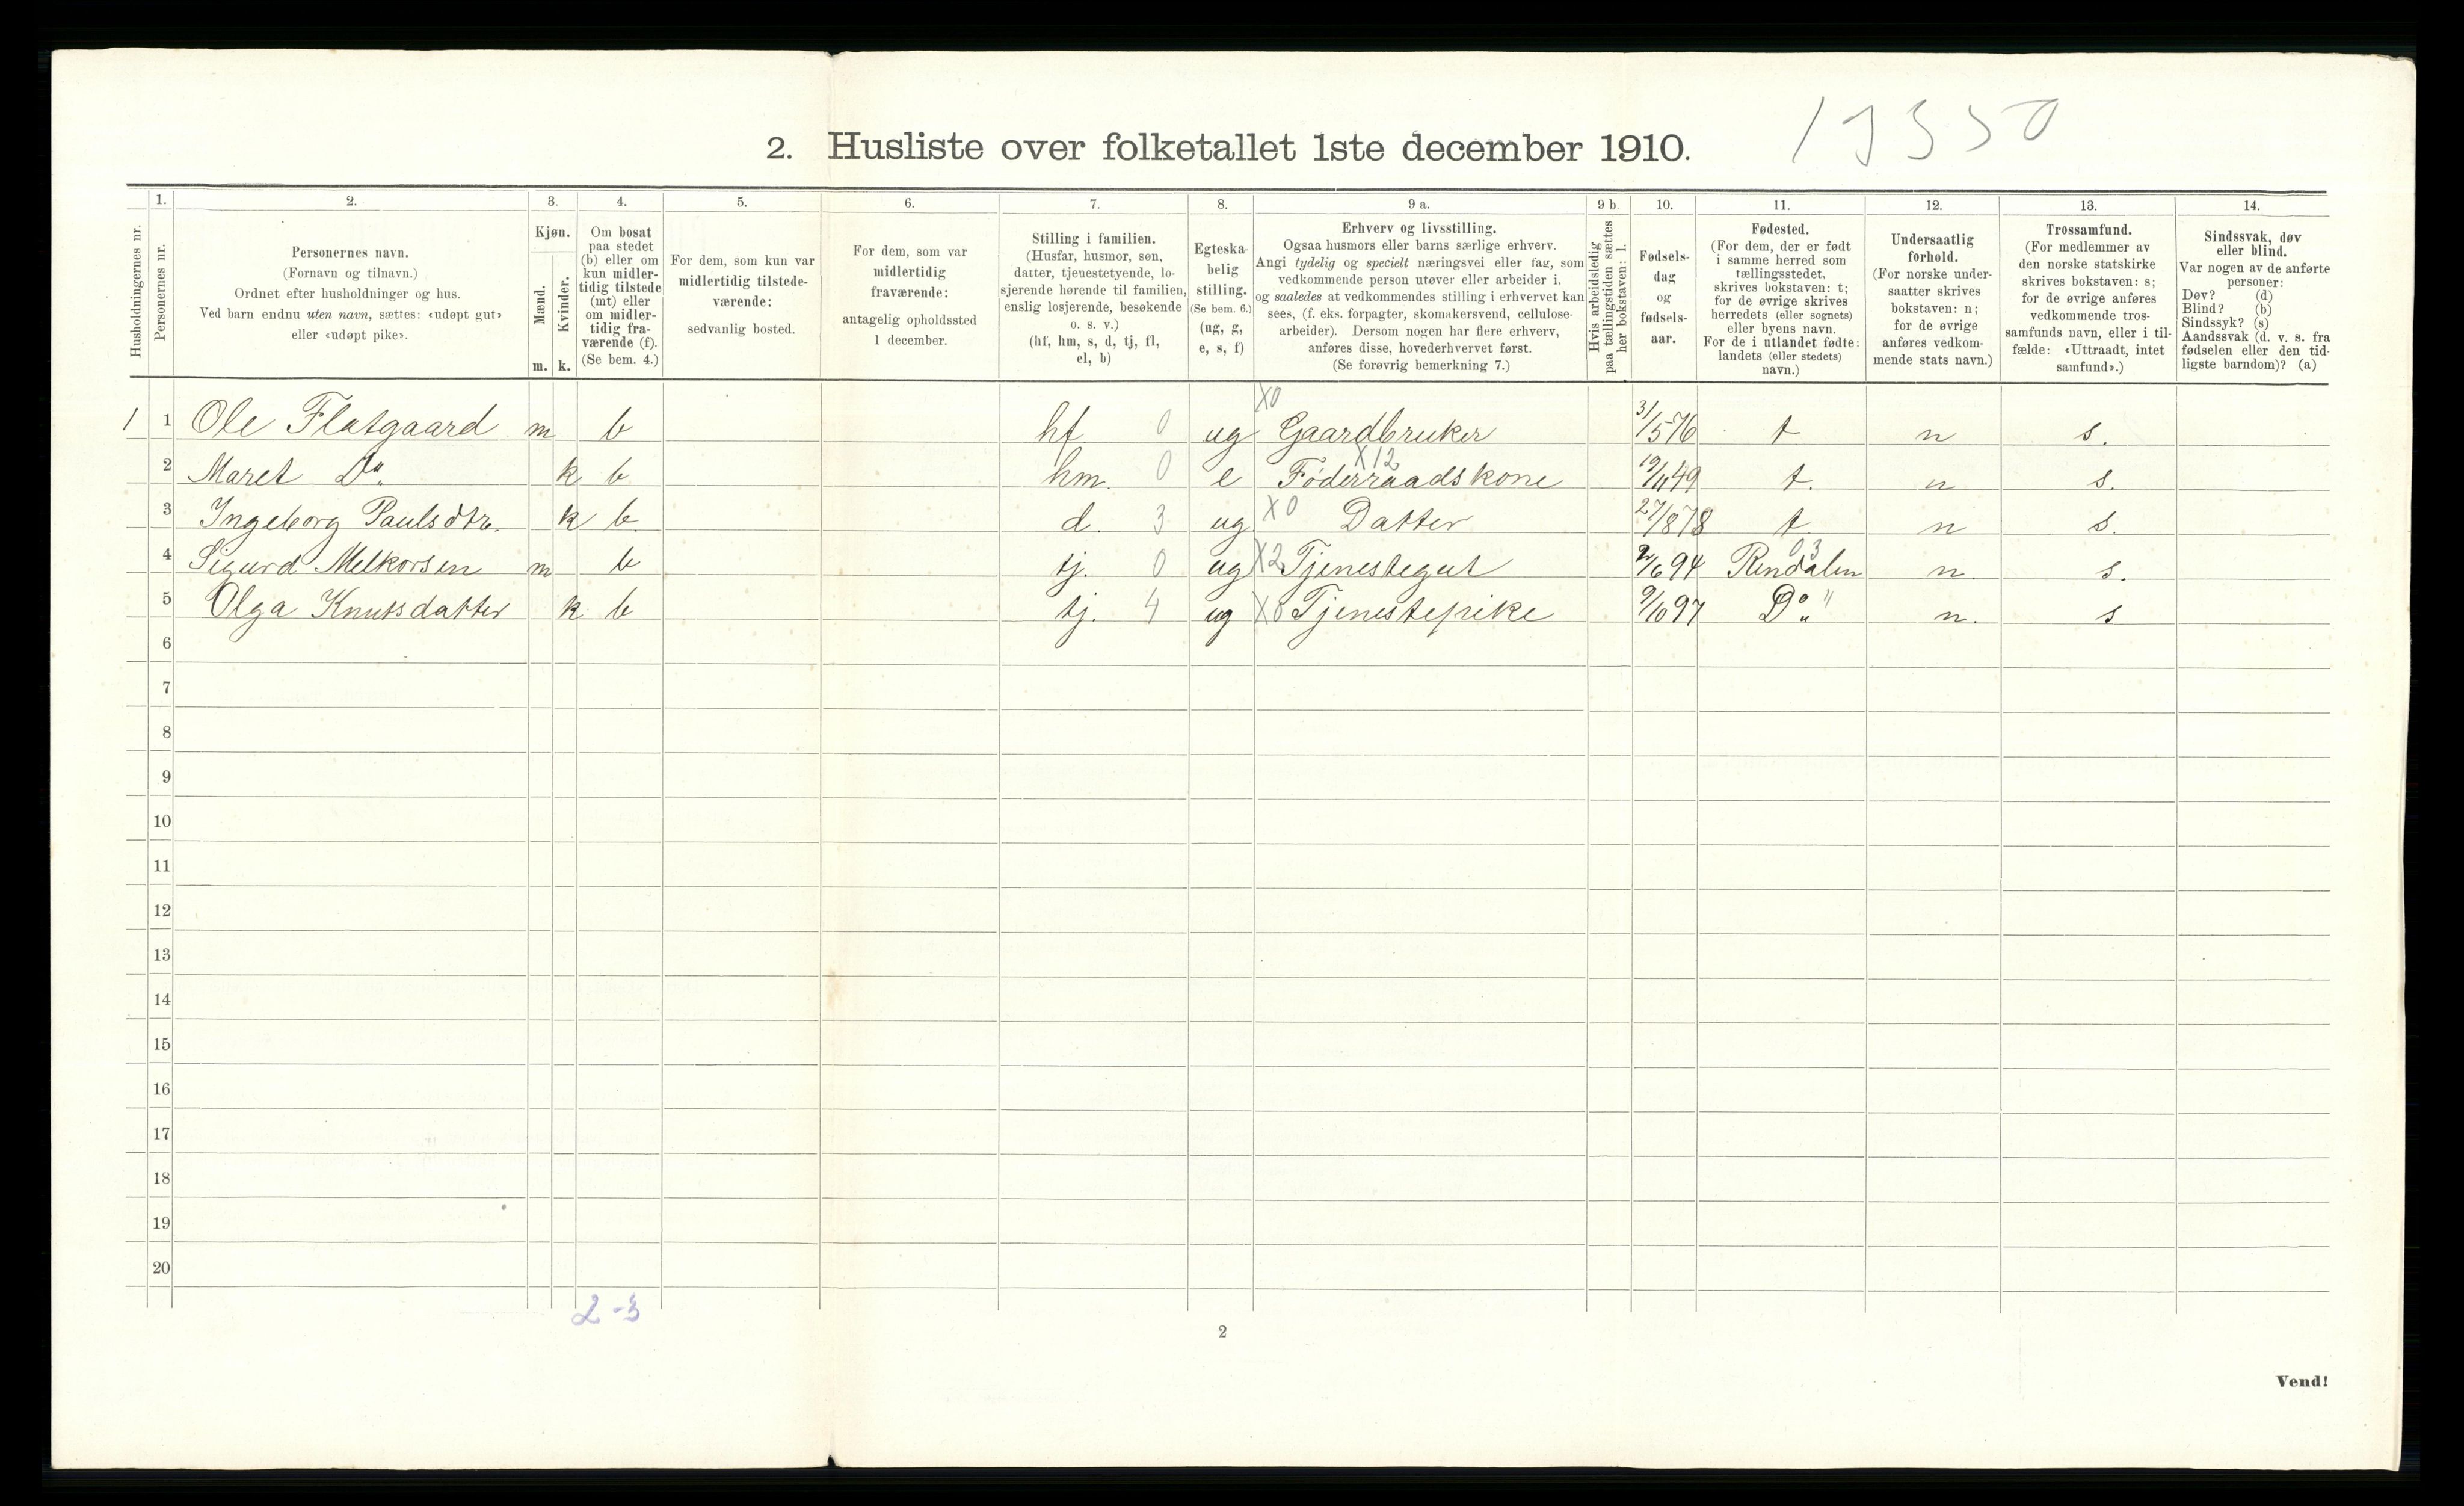 2. Husliste over folketallet 1ste december 1910.
Husholdningernes nr.
1.
Personernes nr.
2.
Personernes navn.
(Fornavn og tilnavn.)
Ordnet efter husholdninger og hus.
Ved barn endnu uten navn, sættes: «udøpt gut»
eller «udøpt pike».
3.
Kjøn.
Mænd.
Kvinder.
m. k.
4.
Om bosat
paa stedet
(b) eller om
kun midler-
tidig tilstede
(mt) eller
om midler-
tidig fra-
værende (f).
(Se bem. 4.)
5.
For dem, som kun var
midlertidig tilstede-
værende:
sedvanlig bosted.
6.
For dem, som var
midlertidig
fraværende:
antagelig opholdssted
1 december.
7.
Stilling i familien.
(Husfar, husmor, søn,
datter, tjenestetyende, lo-
sjerende hørende til familien,
enslig losjerende, besøkende
o. s. v.)
(hf, hm, s, d, tj, fl,
el, b)
8.
Egteska-
belig
stilling.
(Se bem. 6.)
(ug, g,
e, s, f)
9 a.
Erhverv og livsstilling.
Ogsaa husmors eller barns særlige erhverv.
Angi tydelig og specielt næringsvei eller fag, som
vedkommende person utøver eller arbeider i,
og saaledes at vedkommendes stilling i erhvervet kan
sees, (f. eks. forpagter, skomakersvend, cellulose-
arbeider). Dersom nogen har flere erhverv,
anføres disse, hovederhvervet først.
(Se forøvrig bemerkning 7.)
9 b.
Hvis arbeidsledig
paa tællingstiden sættes
her bokstaven: l.
10.
Fødsels-
dag
og
fødsels-
aar.
11.
Fødested.
(For dem, der er født
i samme herred som
tællingsstedet,
skrives bokstaven: t;
for de øvrige skrives
herredets (eller sognets)
eller byens navn.
For de i utlandet fødte:
landets (eller stedets)
navn.)
12.
Undersaatlig
forhold.
(For norske under-
saatter skrives
bokstaven: n;
for de øvrige
anføres vedkom-
mende stats navn.)
13.
Trossamfund.
(For medlemmer av
den norske statskirke
skrives bokstaven: s;
for de øvrige anføres
vedkommende tros-
samfunds navn, eller i til-
fælde: «Uttraadt, intet
samfund».)
14.
Sindssvak, døv
eller blind.
Var nogen av de anførte
personer:
Døv? (d)
Blind? (b)
Sindssyk? (s)
Aandssvak (d. v. s. fra
fødselen eller den tid-
ligste barndom)? (a)
1 1 Ole Flatgaard m b hf 0 ug X0 Gaardbruker 31/5 76 t n s.
2 Maret Do k b hm. 0 e X12 Føderraadskone 19/11 49 t. n s.
3 Ingeborg Paulsdtr. k b d. 3 ug X0 Datter 27/8 78 t n s.
4 Sigurd Melkorsen m b tj. 0 ug X2 Tjenestegut 2/6 94 03 Rendalen n. s.
5 Olga Knutsdatter k b tj. 4 ug Tjenestepike 9/10 97 Do " n. s
6
7
8
9
10
11
12
13
14
15
16
17
18
19
20
2-3
2
Vend!